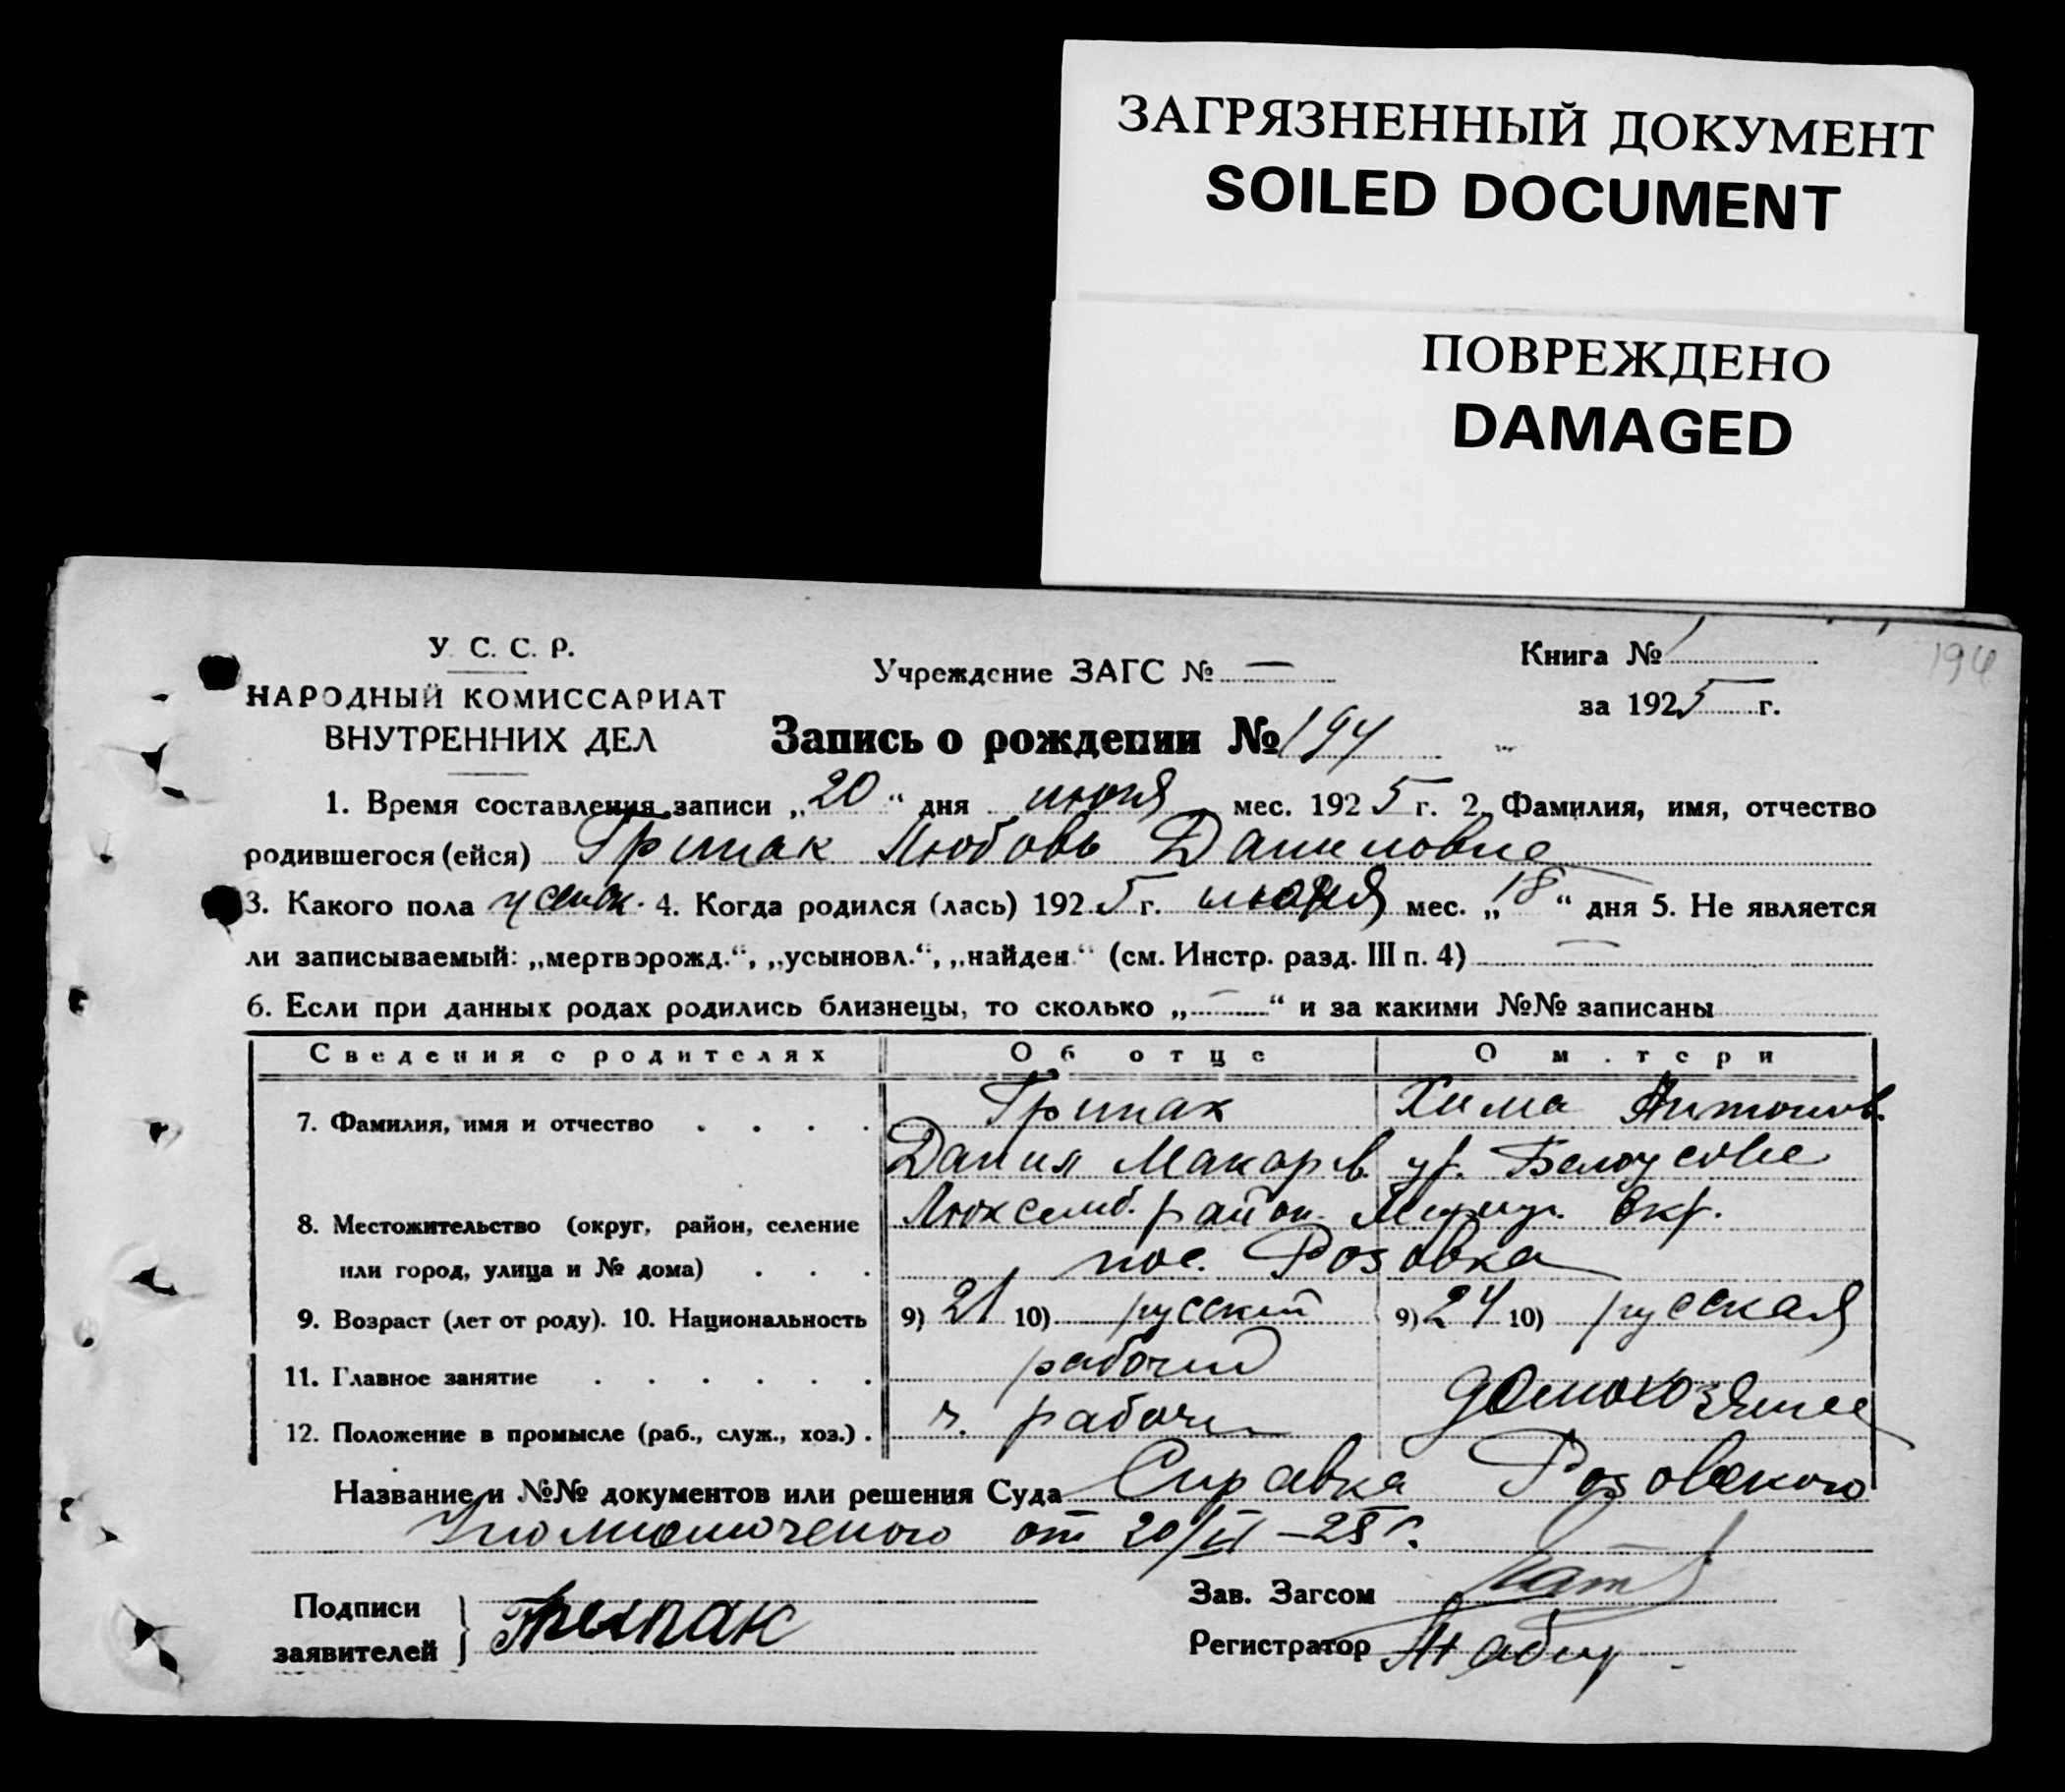 ЗАГРЯЗНЕННЫЙ ДОКУМЕНТ
SOILED DOCUMENT
ПОВРЕЖДЕНО
DAMAGED
194
У. С. С. Р.
НАРОДНЫЙ КОМИССАРИАТ
ВНУТРЕННИХ ДЕЛ
Учреждение ЗАГС № —
Книга № 1
за 1925 г.
Запись о рождении № 194
1. Время составления записи „20“ дня июня мес. 1925 г. 2. Фамилия, имя, отчество
родившегося (ейся) Грипак Любовь Даниловне
3. Какого пола женск. 4. Когда родился (лась) 1925 г. июня мес. „18“ дня 5. Не является
ли записываемый: „мертворожд.“, „усыновл.“, „найден“ (см. Инстр. разд. III п. 4) —
6. Если при данных родах родились близнецы, то сколько „—“ и за какими №№ записаны
Сведения о родителях Об отце О м.тери
7. Фамилия, имя и отчество Грипак Хима Антонов.
Данил Макаров. ур. Белоусове
8. Местожительство (округ, район, селение Люксемб. район. Окр.
или город, улица и № дома) пос. Розовка
9. Возраст (лет от роду). 10. Национальность 9) 21 10) русский 9) 24 10) русская
11. Главное занятие рабочий домохозяйке
12. Положение в промысле (раб., служ., хоз.) ч. рабочи
Название и №№ документов или решения Суда Справка Розовского
Уполномоченого от 20/VI –25 г.
Подписи
заявителей Грыпак
Зав. Загсом
Регистратор